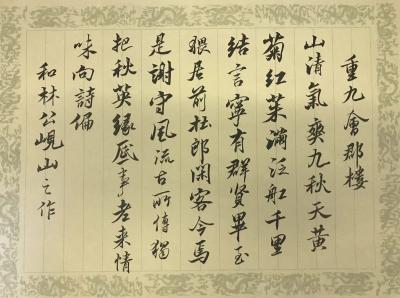 重九會郡樓
山清氣爽九秋天黃
菊紅茱滿泛船千里
結言寧有群賢畢至
猥居前杜郎閑客今焉
是謝守風流古所傳獨
把秋英緣底事老來情
味向詩偏
和林公峴山之作